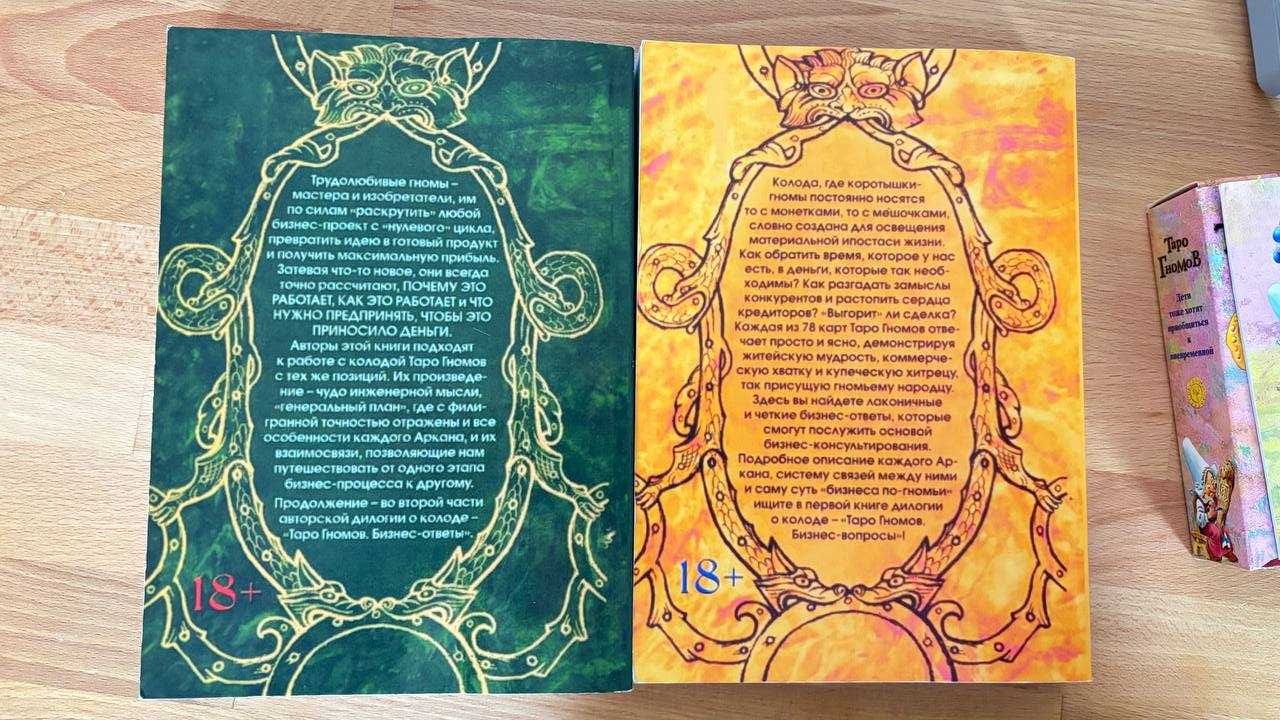 Трудолюбивые гномы –
мастера и изобретатели, им
по силам «раскрутить» любой
бизнес-проект с «нулевого» цикла,
превратить идею в готовый продукт
и получить максимальную прибыль.
Затевая что-то новое, они всегда
точно рассчитают, ПОЧЕМУ ЭТО
РАБОТАЕТ, КАК ЭТО РАБОТАЕТ И ЧТО
НУЖНО ПРЕДПРИНЯТЬ, ЧТОБЫ ЭТО
ПРИНОСИЛО ДЕНЬГИ.
Авторы этой книги подходят
к работе с колодой Таро Гномов
с тех же позиций. Их произведе-
ние – чудо инженерной мысли,
«генеральный план», где с фили-
гранной точностью отражены и все
особенности каждого Аркана, и их
взаимосвязи, позволяющие нам
путешествовать от одного этапа
бизнес-процесса к другому.
Продолжение – во второй части
авторской дилогии о колоде –
«Таро Гномов. Бизнес-ответы».
18+
Колода, где коротышки-
гномы постоянно носятся
то с монетками, то с мешочками,
словно создана для освещения
материальной ипостаси жизни.
Как обратить время, которое у нас
есть, в деньги, которые так необ-
ходимы? Как разгадать замыслы
конкурентов и растопить сердца
кредиторов? «Выгорит» ли сделка?
Каждая из 78 карт Таро Гномов отве-
чает просто и ясно, демонстрируя
житейскую мудрость, коммерче-
скую хватку и купеческую хитрецу,
так присущую гномьему народцу.
Здесь вы найдете лаконичные
и четкие бизнес-ответы, которые
смогут послужить основой
бизнес-консультирования.
Подробное описание каждого Ар-
кана, систему связей между ними
и саму суть «бизнеса по-гномьи»
ищите в первой книге дилогии
о колоде – «Таро Гномов.
Бизнес-вопросы»!
18+
Таро
Гномов
Дети
тоже хотят
приобщиться
к